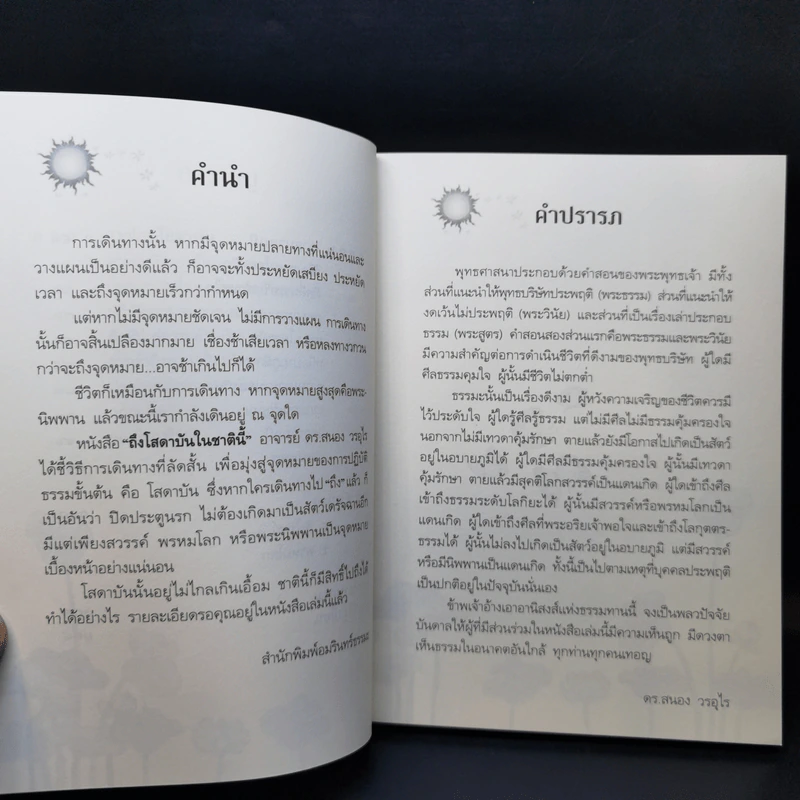 คำนำ
การเดินทางนั้น หากมีจุดหมายปลายทางที่แน่นอนและ
วางแผนเป็นอย่างดีแล้ว ก็อาจจะทั้งประหยัดเสบียง ประหยัด
เวลา และถึงจุดหมายเร็วกว่ากำหนด
แต่หากไม่มีจุดหมายชัดเจน ไม่มีการวางแผน การเดินทาง
นั้นก็อาจสิ้นเปลืองมากมาย เชื่องช้าเสียเวลา หรือหลงทางวกวน
กว่าจะถึงจุดหมาย...อาจช้าเกินไปก็ได้
ชีวิตก็เหมือนกับการเดินทาง หากจุดหมายสูงสุดคือพระ-
นิพพาน แล้วขณะนี้เรากำลังเดินอยู่ ณ จุดใด
หนังสือ "ถึงโสดาบันในชาตินี้" อาจารย์ ดร.สนอง วรอุไร
ได้ชี้วิธีการเดินทางที่ลัดสั้น เพื่อมุ่งสู่จุดหมายของการปฏิบัติ
ธรรมขั้นต้น คือ โสดาบัน ซึ่งหากใครเดินทางไป "ถึง" แล้ว ก็
เป็นอันว่า ปิดประตูนรก ไม่ต้องเกิดมาเป็นสัตว์เดรัจฉานอีก
มีแต่เพียงสวรรค์ พรหมโลก หรือพระนิพพานเป็นจุดหมาย
เบื้องหน้าอย่างแน่นอน
โสดาบันนั้นอยู่ไม่ไกลเกินเอื้อม ชาตินี้ก็มีสิทธิ์ไปถึงได้
ทำได้อย่างไร รายละเอียดรอคุณอยู่ในหนังสือเล่มนี้แล้ว
สำนักพิมพ์อมรินทร์ธรรมะ
คำปรารภ
พุทธศาสนาประกอบด้วยคำสอนของพระพุทธเจ้า มีทั้ง
ส่วนที่แนะนำให้พุทธบริษัทประพฤติ (พระธรรม) ส่วนที่แนะนำให้
งดเว้นไม่ประพฤติ (พระวินัย) และส่วนที่เป็นเรื่องเล่าประกอบ
ธรรม (พระสูตร) คำสอนสองส่วนแรกคือพระธรรมและพระวินัย
มีความสำคัญต่อการดำเนินชีวิตที่ดีงามของพุทธบริษัท ผู้ใดมี
ศีลธรรมคุมใจ ผู้นั้นมีชีวิตไม่ตกต่ำ
ธรรมะนั้นเป็นเรื่องดีงาม ผู้หวังความเจริญของชีวิตควรมี
ไว้ประดับใจ ผู้ใดรู้ศีลรู้ธรรม แต่ไม่มีศีลไม่มีธรรมคุ้มครองใจ
นอกจากไม่มีเทวดาคุ้มรักษา ตายแล้วยังมีโอกาสไปเกิดเป็นสัตว์
อยู่ในอบายภูมิได้ ผู้ใดมีศีลมีธรรมคุ้มครองใจ ผู้นั้นมีเทวดา
คุ้มรักษา ตายแล้วมีสุคติโลกสวรรค์เป็นแดนเกิด ผู้ใดเข้าถึงศีล
เข้าถึงธรรมระดับโลกิยะได้ ผู้นั้นมีสวรรค์หรือพรหมโลกเป็น
แดนเกิด ผู้ใดเข้าถึงศีลที่พระอริยเจ้าพอใจและเข้าถึงโลกุตตร-
ธรรมได้ ผู้นั้นไม่ลงไปเกิดเป็นสัตว์อยู่ในอบายภูมิ แต่มีสวรรค์
หรือมีนิพพานเป็นแดนเกิด ทั้งนี้เป็นไปตามเหตุที่บุคคลประพฤติ
เป็นปกติอยู่ในปัจจุบันนั่นเอง
ข้าพเจ้าอ้างเอาอานิสงส์แห่งธรรมทานนี้ จงเป็นพลวปัจจัย
บันดาลให้ผู้ที่มีส่วนร่วมในหนังสือเล่มนี้มีความเห็นถูก มีดวงตา
เห็นธรรมในอนาคตอันใกล้ ทุกท่านทุกคนเทอญ
ดร.สนอง วรอุไร